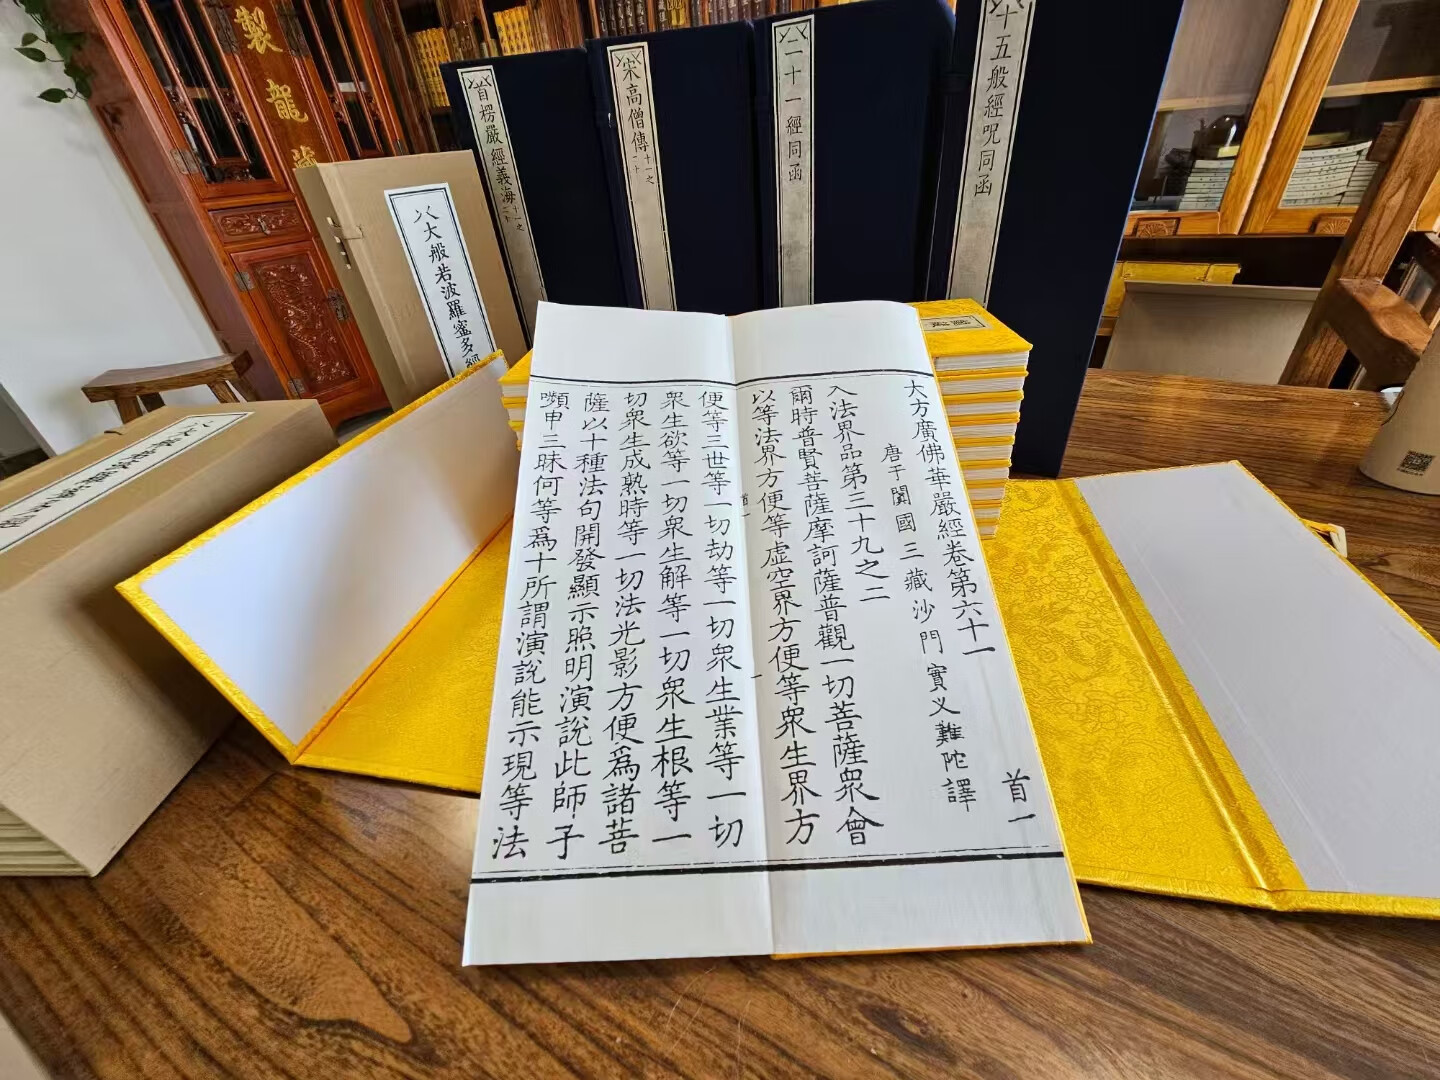 大方廣佛華嚴經卷第六十一
首一
唐于闐國三藏沙門實义難陀譯
入法界品第三十九之二
爾時普賢菩薩摩訶薩普觀一切菩薩衆會
以等法界方便等虛空界方便等衆生界方
便等三世等一切劫等一切衆生業等一切
衆生欲等一切衆生解等一切衆生根等一
切衆生成熟時等一切法光影方便爲諸菩
薩以十種法句開發顯示照明演説此師子
嚬申三昧何等爲十所謂演説能示現等法
十五般經呪同函
二十一經同函
宋高僧傳
十一之
二十
首楞嚴經義海
十一之
二十
大般若波羅蜜多經
製龍